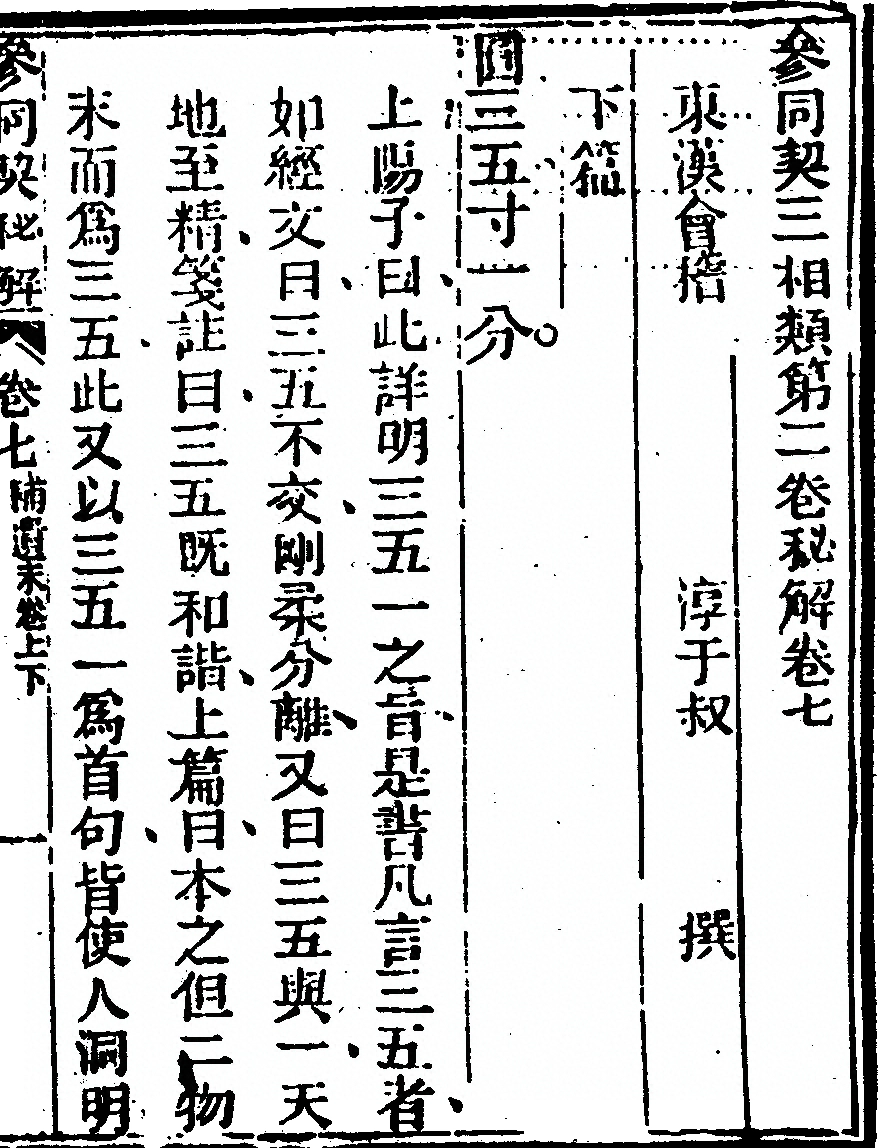 參同契三相類第二卷秘解卷七
東漢會稽　淳于叔　撰
下篇
圓三五寸一分。
上陽子曰此詳明三五一之旨是書凡言三五者
如經文曰三五不交剛柔分離又曰三五與一天
地至精箋註曰三五既和諧上篇曰本之但二物
末而爲三五此又以三五一爲首句皆使人洞明
參同契秘解　卷七補遺末卷上下　一